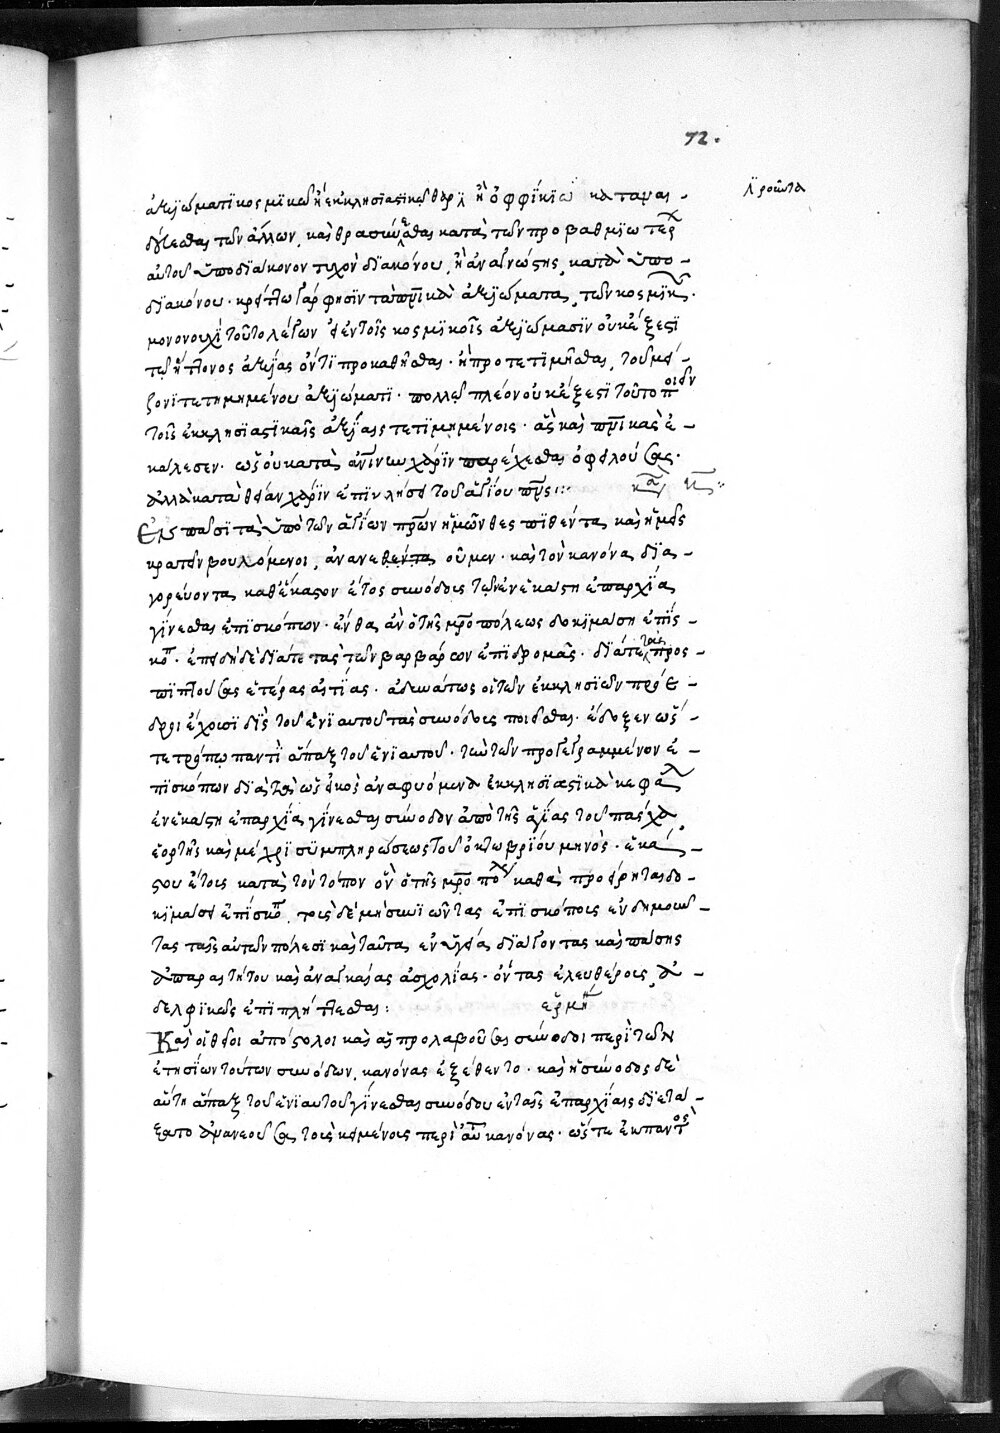 72.
ἀξιωματικὸς μϊκῶ ἢ ἐκκλησιαστικῶ θαρ ἢ ὀφφϊκϊω καταψαι-
δύεσθαι τῶν ἄλλων, καὶ θρασύνεσθαι κατὰ τῶν προβαθμίω
αὐτοῦ ὑποδϊάκονον τυχὸν δϊακόνου, ἢ ἀναγνώστης κατὰ ὑπο-
δϊακόνου. κρείττω γάρ φησϊν τὰ πνϊκὰ ἀξϊώματα, τῶν κοσμϊκ.
μονονουχὶ τοῦτο λέγων εἰ ἐν τοῖς κοσμϊκοῖς ἀξϊώμασϊν οὐκ ἔξεστϊ
τῶ ἥττονος ἀξίας ὄντϊ προκαθῆσθαι. ἢ προτετϊμῆσθαι, τοῦ μεί-
ζονϊ τετϊμημένου ἀξϊώματϊ. πολλῶ πλέον οὐκ ἔξεστϊ τοῦτο ποιεῖν
τοῖς ἐκκλησϊαστϊκαῖς ἀξίαις τετϊμημένοις. ἃς καὶ πνϊκὰς ἐ-
κάλεσεν. ὡς οὐ κατὰ ἀνϊνων χάρϊν παρέχεσθαι ὀφειλούσας.
ἀλλὰ κατὰ θείαν χάρϊν ἐπικλήσει τοῦ ἁγίου πνς:
Ἐν πᾶσϊ τὰ ὑπὸ τῶν ἁγίων πρων ἡμῶν θεσπϊσθέντα καὶ ἡμεῖς
κρατεῖν βουλόμενοι, ἀνανεοῦμεν. καὶ τὸν κανόνα δϊα-
γορεύοντα καθέκαστον ἔτος συνόδους τῶν ἐν ἑκάστη ἐπαρχία
γίνεσθαι ἐπισκόπων. ἔνθα ἂν ὁ τῆς μροπόλεως δοκϊμάση ἐπίσ-
κοπ. ἐπειδὴ δὲ δϊά τε τὰς τῶν βαρβάρων ἐπϊδρομὰς. δϊά τε τὰς προσ-
πϊπτούσας ἑτέρας αἰτίας. ἀδυνάτως οἱ τῶν ἐκκλησϊῶν πρόε-
δροι ἔχουσϊ δὶς τοῦ ἐνϊαυτοῦ τὰς συνόδους ποιεῖσθαι. ἔδοξεν ὥσ-
τε τρόπω παντὶ ἅπαξ τοῦ ἐνϊαυτοῦ. τῶν προγεγραμμένον ἐ-
πϊσκόπων δϊὰ τὰ ὡς εἰκὸς ἀναφυόμενα ἐκκλησϊαστϊκὰ κεφαλ
ἐν ἑκάστη ἐπαρχία γίνεσθαι σύνοδον ἀπὸ τῆς ἁγίας τοῦ πάσχα
ἑορτῆς καὶ μέχρϊ συμπληρώσεως τοῦ ὀκτωβρίου μηνὸς. ἑκά-
στου ἔτους κατὰ τὸν τόπον ὃν ὁ τῆς μροπόλ καθὰ προείρηται δο-
κϊμάσει ἐπίσκοπ. τοὺς δὲ μὴ συνϊῶντας ἐπϊσκόπους ἐνδημοῦν-
τας ταῖς αὐτῶν πόλεσϊ καὶ ταῦτα ἐν ὑγεία δϊάγοντας καὶ πάσης
ἀπαραιτήτου καὶ ἀναγκαίας ἀσχολίας. ὄντας ἐλευθέρους, ἀ-
δελφϊκῶς ἐπϊπλήττεσθαι: ἑρμη
Καὶ οἱ θεῖοι ἀπόστολοι καὶ αἱ προλαβοῦσαι σύνοδοι περὶ τῶν
ἐτησίων τούτων συνόδων, κανόνας ἐξέθεντο. καὶ ἡ σύνοδος δὲ
αὕτη ἅπαξ τοῦ ἐνϊαυτοῦ γίνεσθαι συνόδου ἐν ταῖς ἐπαρχίαις δϊετά-
ξατο ἀνανεοῦσα τοὺς κειμένους περὶ αὐτ κανόνας. ὥστε ἐκ παντὸς